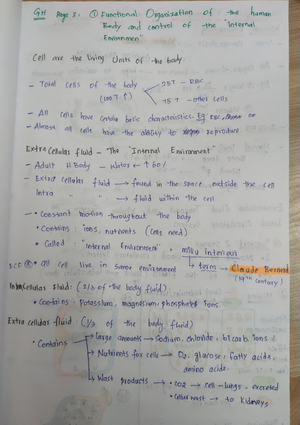 GH Page 3. ① Functional Organization of the human
Body and control of the "internal
Environmen"
Cell are the living Units of the body.
- Total cells of the body → 25T - RBC
(100T ↑) → 75T - other cells
- All cells have certain basic characteristics. Eg
- Almost all cells have the ability to reproduce
Extra Cellular fluid - The "Internal Environment"
- Adult H.Body - Water ↑ 60%
- Extra cellular fluid → found in the space outside the cell
Intra " → fluid within the cell
- • Constant motion throughout the body
• Contains ions, nutrients (cells need)
• Called "Internal Environment" milieu interieur
↳ term → Claude Bernard
• All cell live in same environment (19th century)
Intra Cellular fluid: (2/3 of the body fluid)
• Contains - Potassium, magnesium, phosphate ions.
Extra cellular fluid (1/3 of the body fluid)
• Contains → large amounts → Sodium, chloride, bicarb ions
→ Nutrients for cells → O₂, glucose, fatty acids,
amino acids.
→ Wast products → • CO2 → cell - lungs, excreted
• Cellular wast → to kidneys